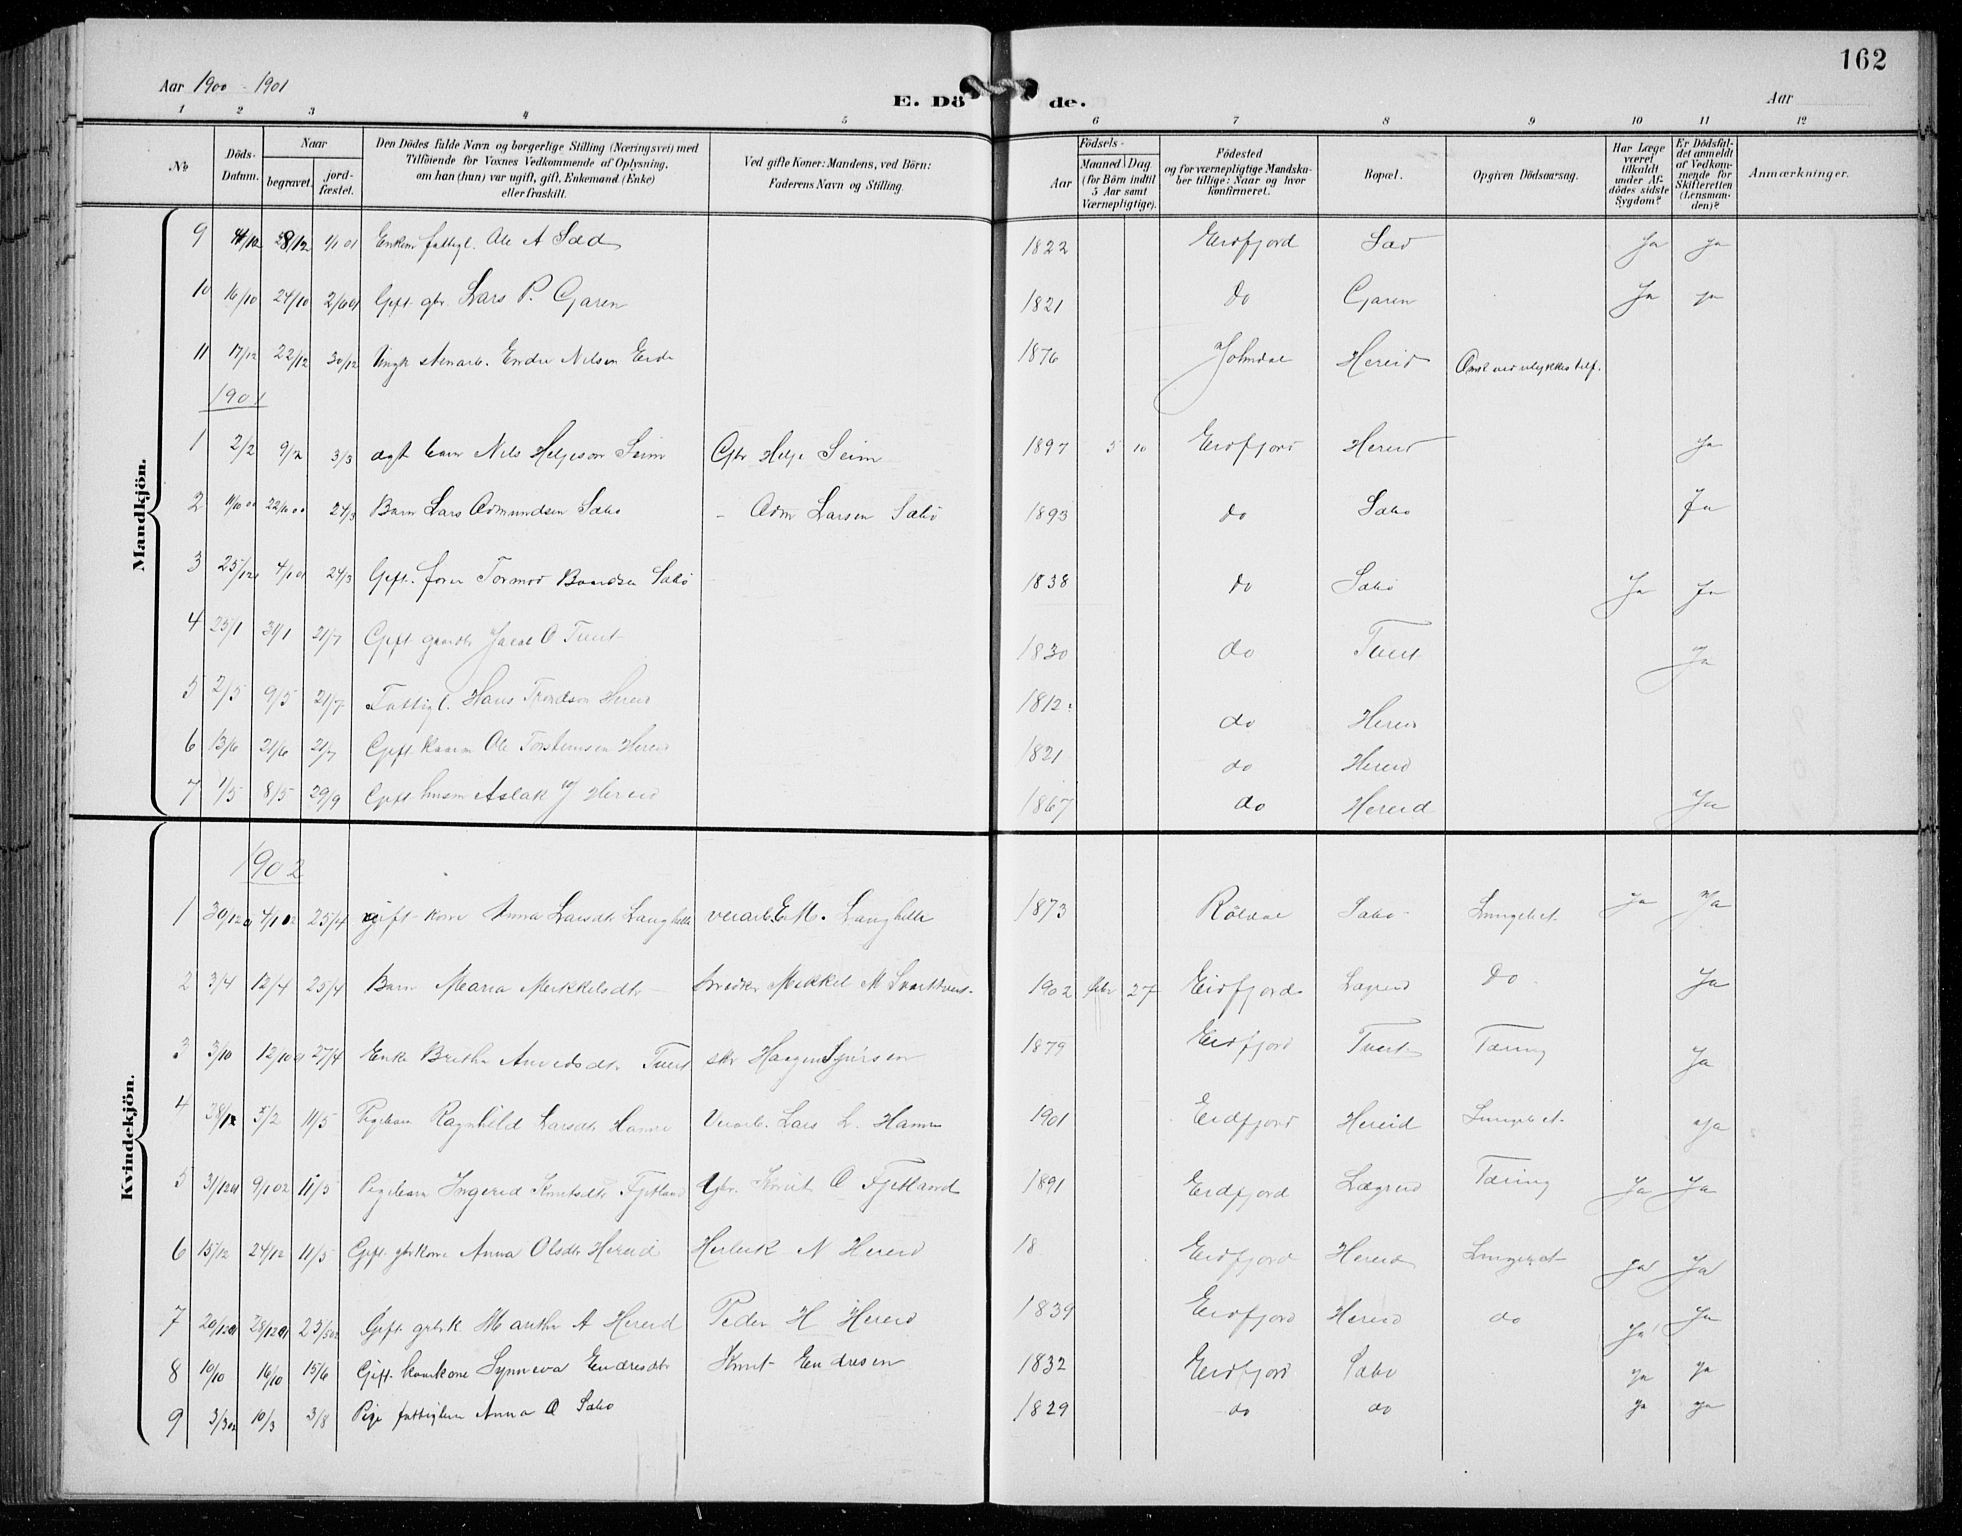 162
Aar 1900 - 1901
E. Dö de.
Aar
1 2 3 4 5 6 7 8 9 10 11 12
No
Döds-Datum.
Naar
begravet.
jord-fæstet.
Den Dödes fulde Navn og borgerlige Stilling (Næringsvei) med
Tilföiende for Voxnes Vedkommende af Oplysning,
om han (hun) var ugift, gift, Enkemand (Enke)
eller fraskilt.
Ved gifte Koner: Mandens, ved Börn:
Faderens Navn og Stilling.
Födsels-
Aar
Maaned Dag
(for Börn indtil
5 Aar samt
Værnepligtige).
Födested
og for værnepligtige Mandska-
ber tillige: Naar og hvor
konfirmeret.
Bopæl.
Opgiven Dödsaarsag.
Har Læge
været
tilkaldt
under Af-
dödes sidste
Sygdom?
Er Dödsfal-
det anmeldt
af Vedkom-
mende for
Skifteretten
(Lensman-
den)?
Anmærkninger.
Mandkjön.
9 28/12 1/1 01 Ole A Sæd 1822 Eidfjord Sæd Ja Ja
10 16/10 24/10 Gift gbr. Lars P. Garen 1821 do Garen Ja Ja
11 17/12 22/12 30/12 Endre Nilsen Eide 1876 Hereid
1901
1 2/2 9/2 3/3 ægt barn Nils Helgeson Seim Gbr Helje Seim 1897 5 10 Eidfjord Hereid Ja
2 11/10 00 22/10 00 24/3 Barn Lars Odmundsen Sæbø - Odm Larsen Sæbø 1893 do Sæbø Ja
3 25/12 4/1 01 24/3 Gift. Tormod Baardsen Sæbø 1838 do Sæbø Ja Ja
4 25/1 31/1 21/7 Gift O Tveit 1830 do Tveit Ja
5 2/5 9/5 21/7 Fattigl. Hans Trondson Hereid 1812 do Hereid
6 13/6 21/6 21/7 Gift Ole Torsteinsen Hereid 1821 do Hereid
7 1/5 8/5 29/9 Gift husm Aslak Hereid 1867 do Hereid Ja
Kvindekjön.
1902
1 30/12 01 4/1 02 25/4 gift kone Anna Larsdtr Langhelle veiarb. E M. Langhelle 1873 Röldal Sæbø Lungebet. Ja Ja
2 3/4 12/4 25/4 Barn Maria Mikkelsdtr Mikkel M 1902 febr 27 Eidfjord Lægreid Do Ja
3 3/10 12/10 01 27/4 Enke Britha Tveit 1879 Eidfjord Tveit Tæring Ja
4 5/2 11/5 Pigebarn Ragnhild Larsdtr Hamre Veiarb. Lars L. Hamre 1901 Eidfjord Hereid Lungebet. Ja
5 31/12 01 9/1 02 11/5 Pigebarn Ingerid Knutsdtr Fjetland Gbr. Knut O Fjetland 1891 Eidfjord Lægreid Tæring Ja Ja
6 15/12 24/12 11/5 Gift gbrkone Anna Olsdtr Hereid Herleik N Hereid 18 Eidfjord Hereid Lungebet Ja Ja
7 20/12 01 28/12 01 25/5 02 Gift gbrk Martha A Hereid Peder H Hereid 1839 Eidfjord Hereid do Ja Ja
8 10/10 16/10 15/6 Gift kaarkone Synneva Endresdtr Knut Endresen 1832 Eidfjord Sæbø Ja Ja
9 3/3 02 10/3 3/8 Pige Anna O Sæbø 1829 do do Ja Ja